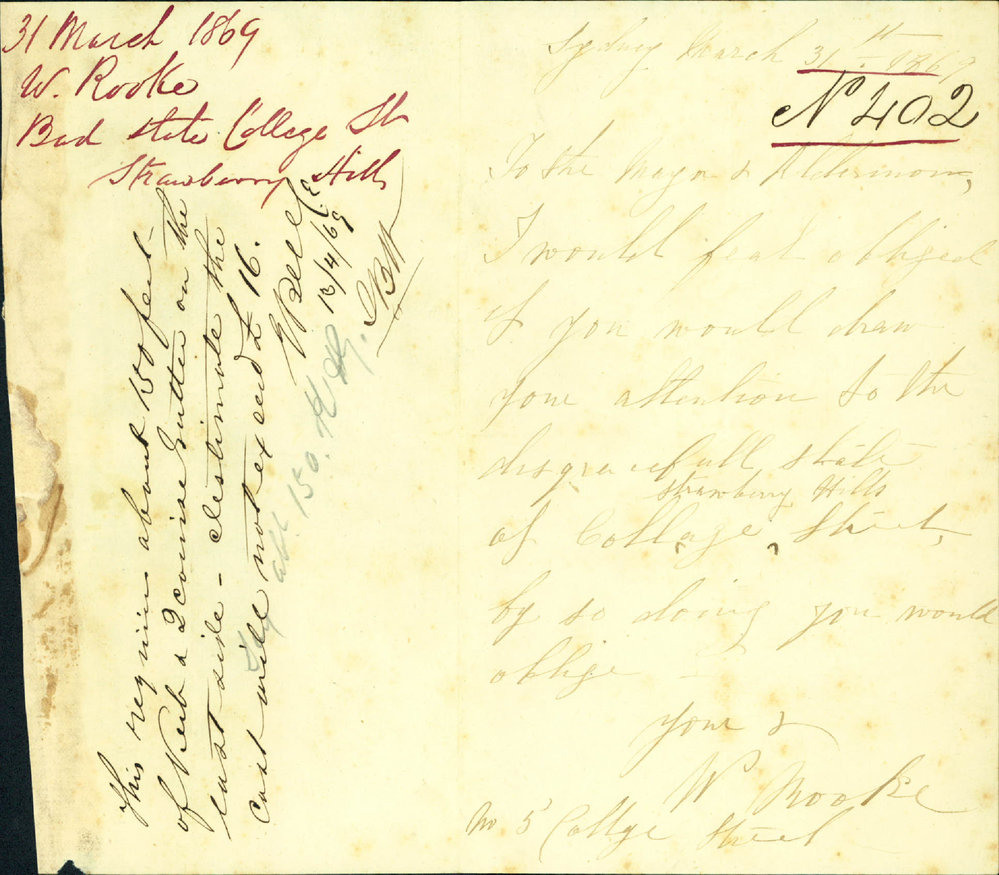 31 March 1869
W. Rooke
Bad state College St
Strawberry Hills
This requires about 150 feet
of Kerb & 2 course gutter on the
east side - I estimate the
cost will not exceed £ 16.
E Bell CE
13/4/69
abt. 150.
Sydney March 31st 1869
No 402
To the Mayor & Aldermen,
I would feal obliged
if you would draw
your attention to the
disgracefull state
Strawberry Hills
of Collage Street,
by so doing you would
oblige
your &
W Rooke
No 5 Collge Street